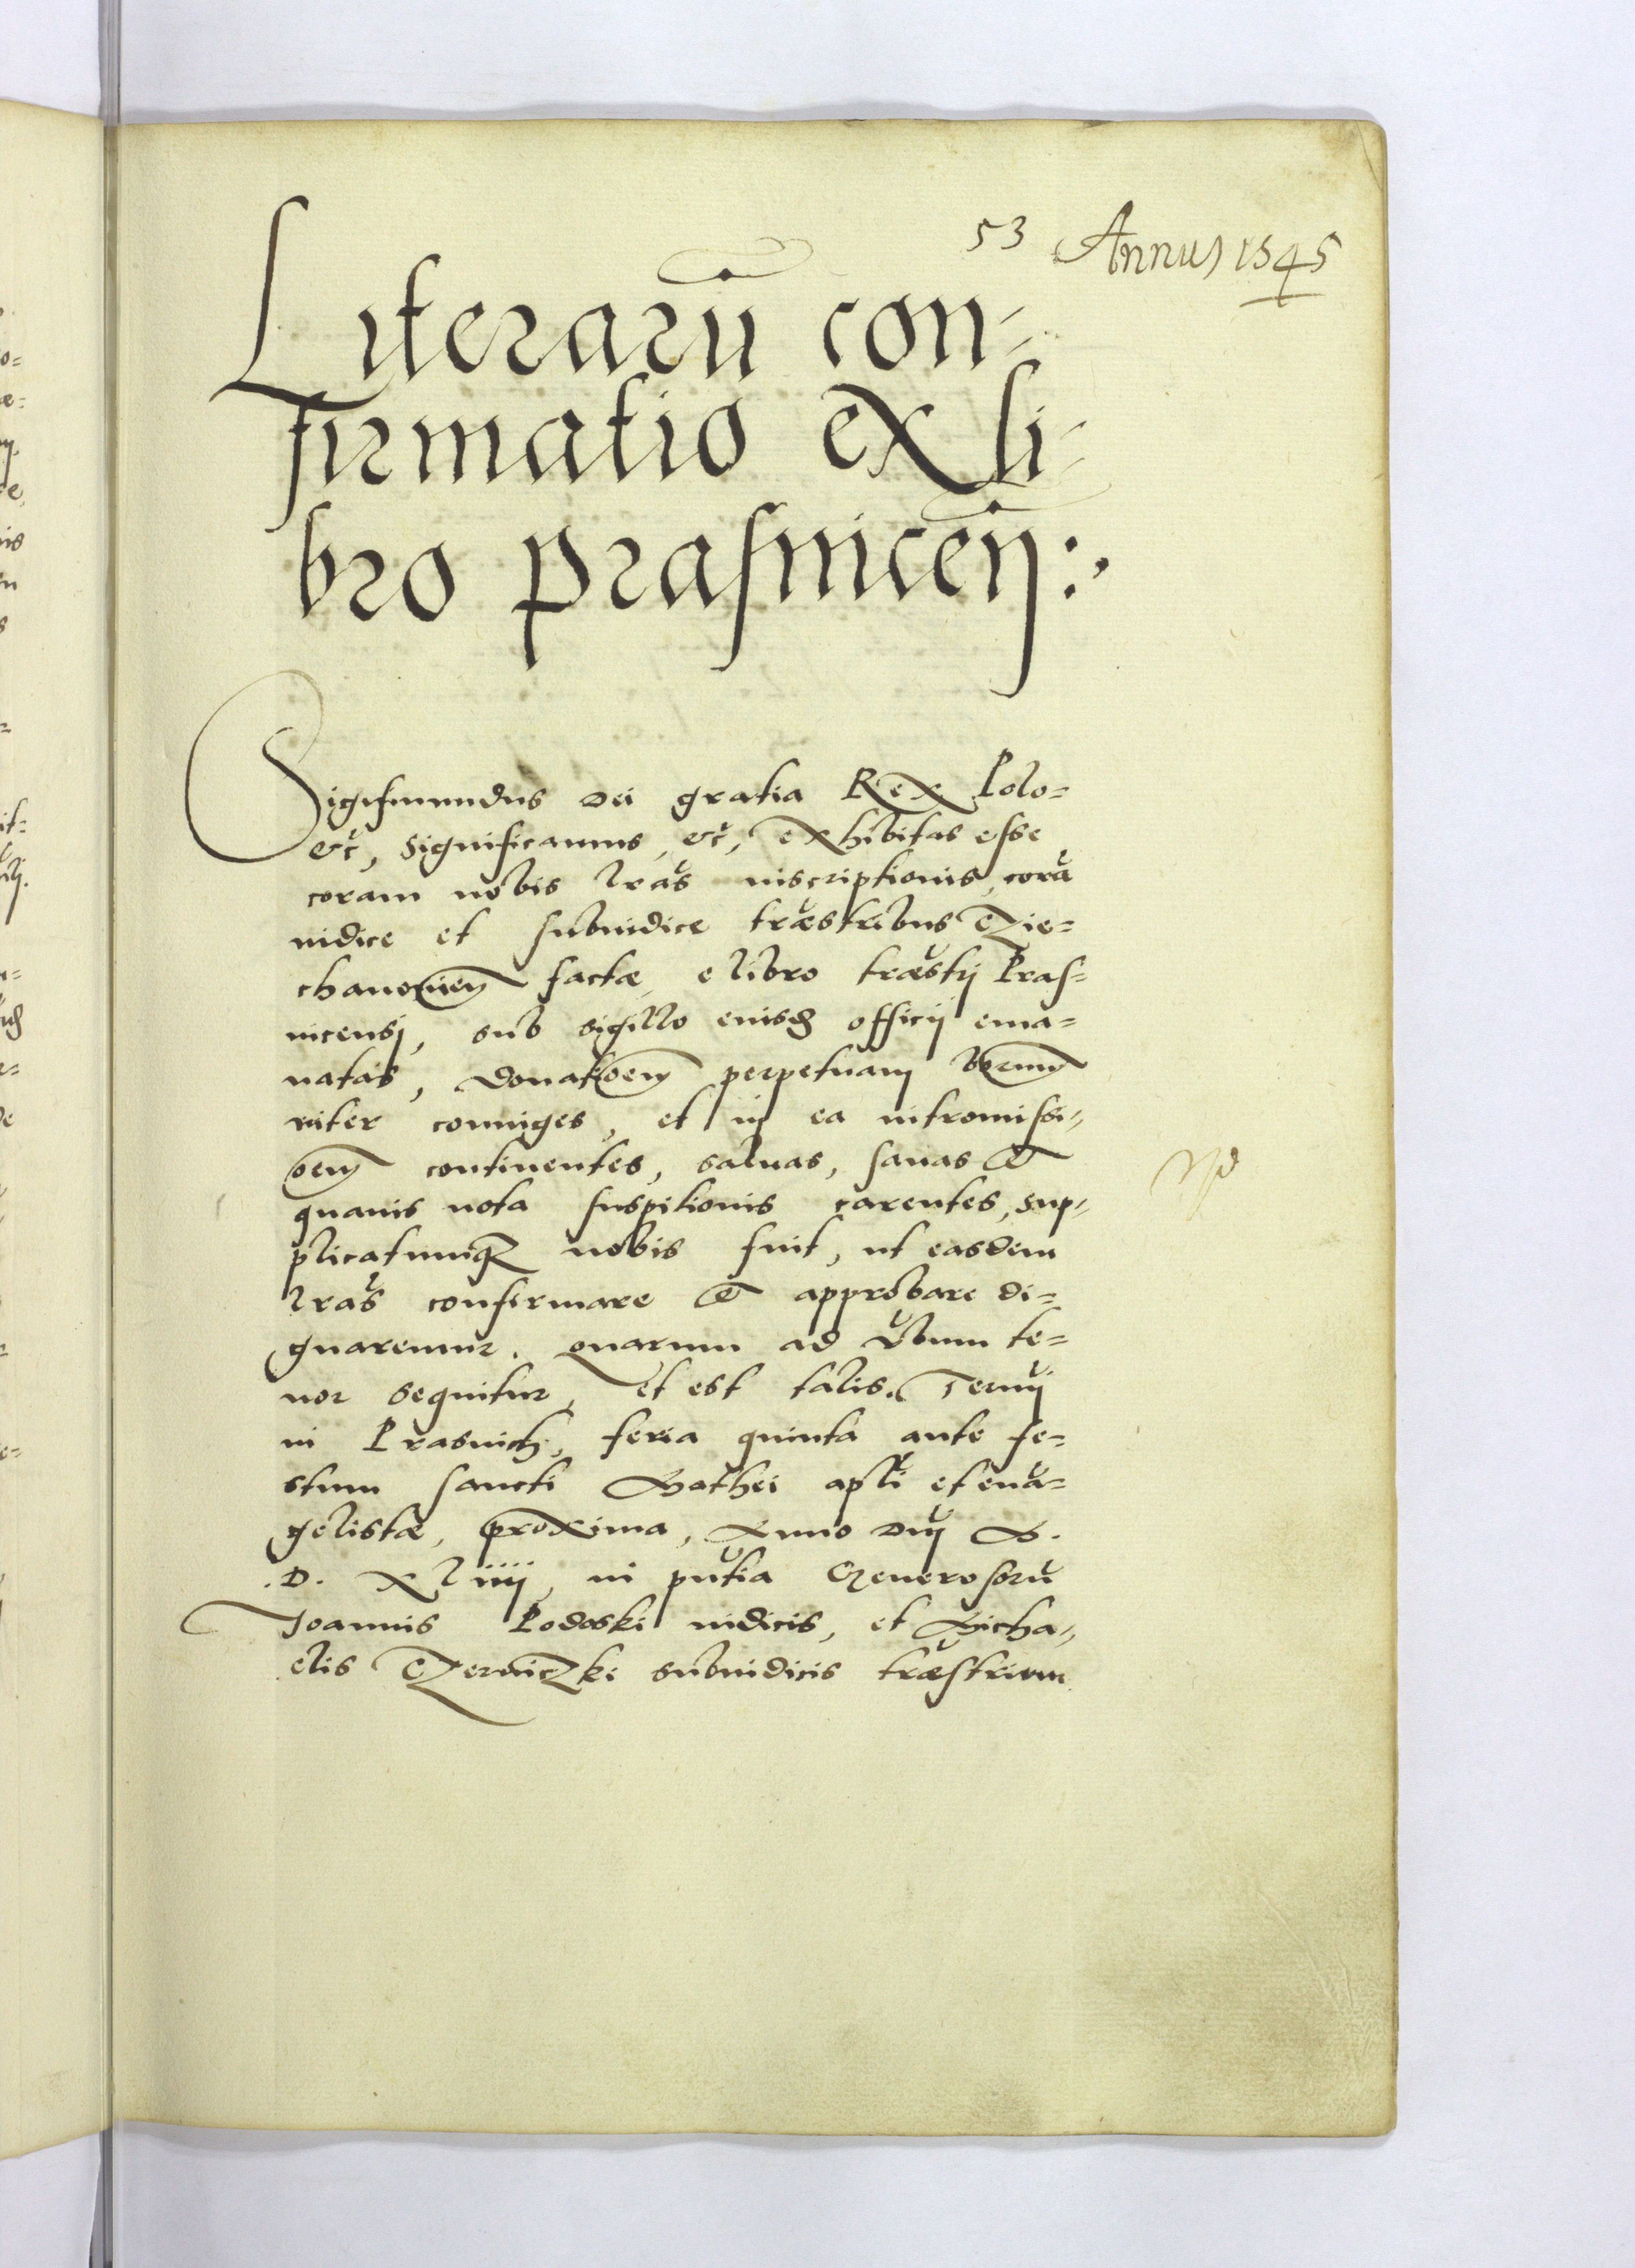 53 Annus 1545
Literarũ con-
firmatio ex li-
bro prasniceñ:
Sigismundus Dei gratia Rex Polo=
etc, significamus, etc, exhibitas esse
coram nobis lras inscriptionis, corã
iudice et subiudice træstribus Czie=
chanovien factæ, e libro træstri Pras=
nicensi, sub sigillo eiusd officij ema=
natas, donatoem perpetuam bonorum
inter coniuges, et in ea intromissi=
oem continentes, salvas, sanas et
quavis nota suspitionis carentes, sup=
plicatumq nobis fuit, ut easdem
lras confirmare et approbare di=
gnaremur. quarum ad vbum te=
nor sequitur, et est talis. Termi
in Prasnich, feria quinta ante fe=
stum sancti Mathei apli et evã=
gelistæ, proxima, Anno Dnj M.
.D. Xliiij, in pñtia Generosorũ
Joannis Podoski iudicis, et Micha=
elis Czerniczki subiudicis træstrium